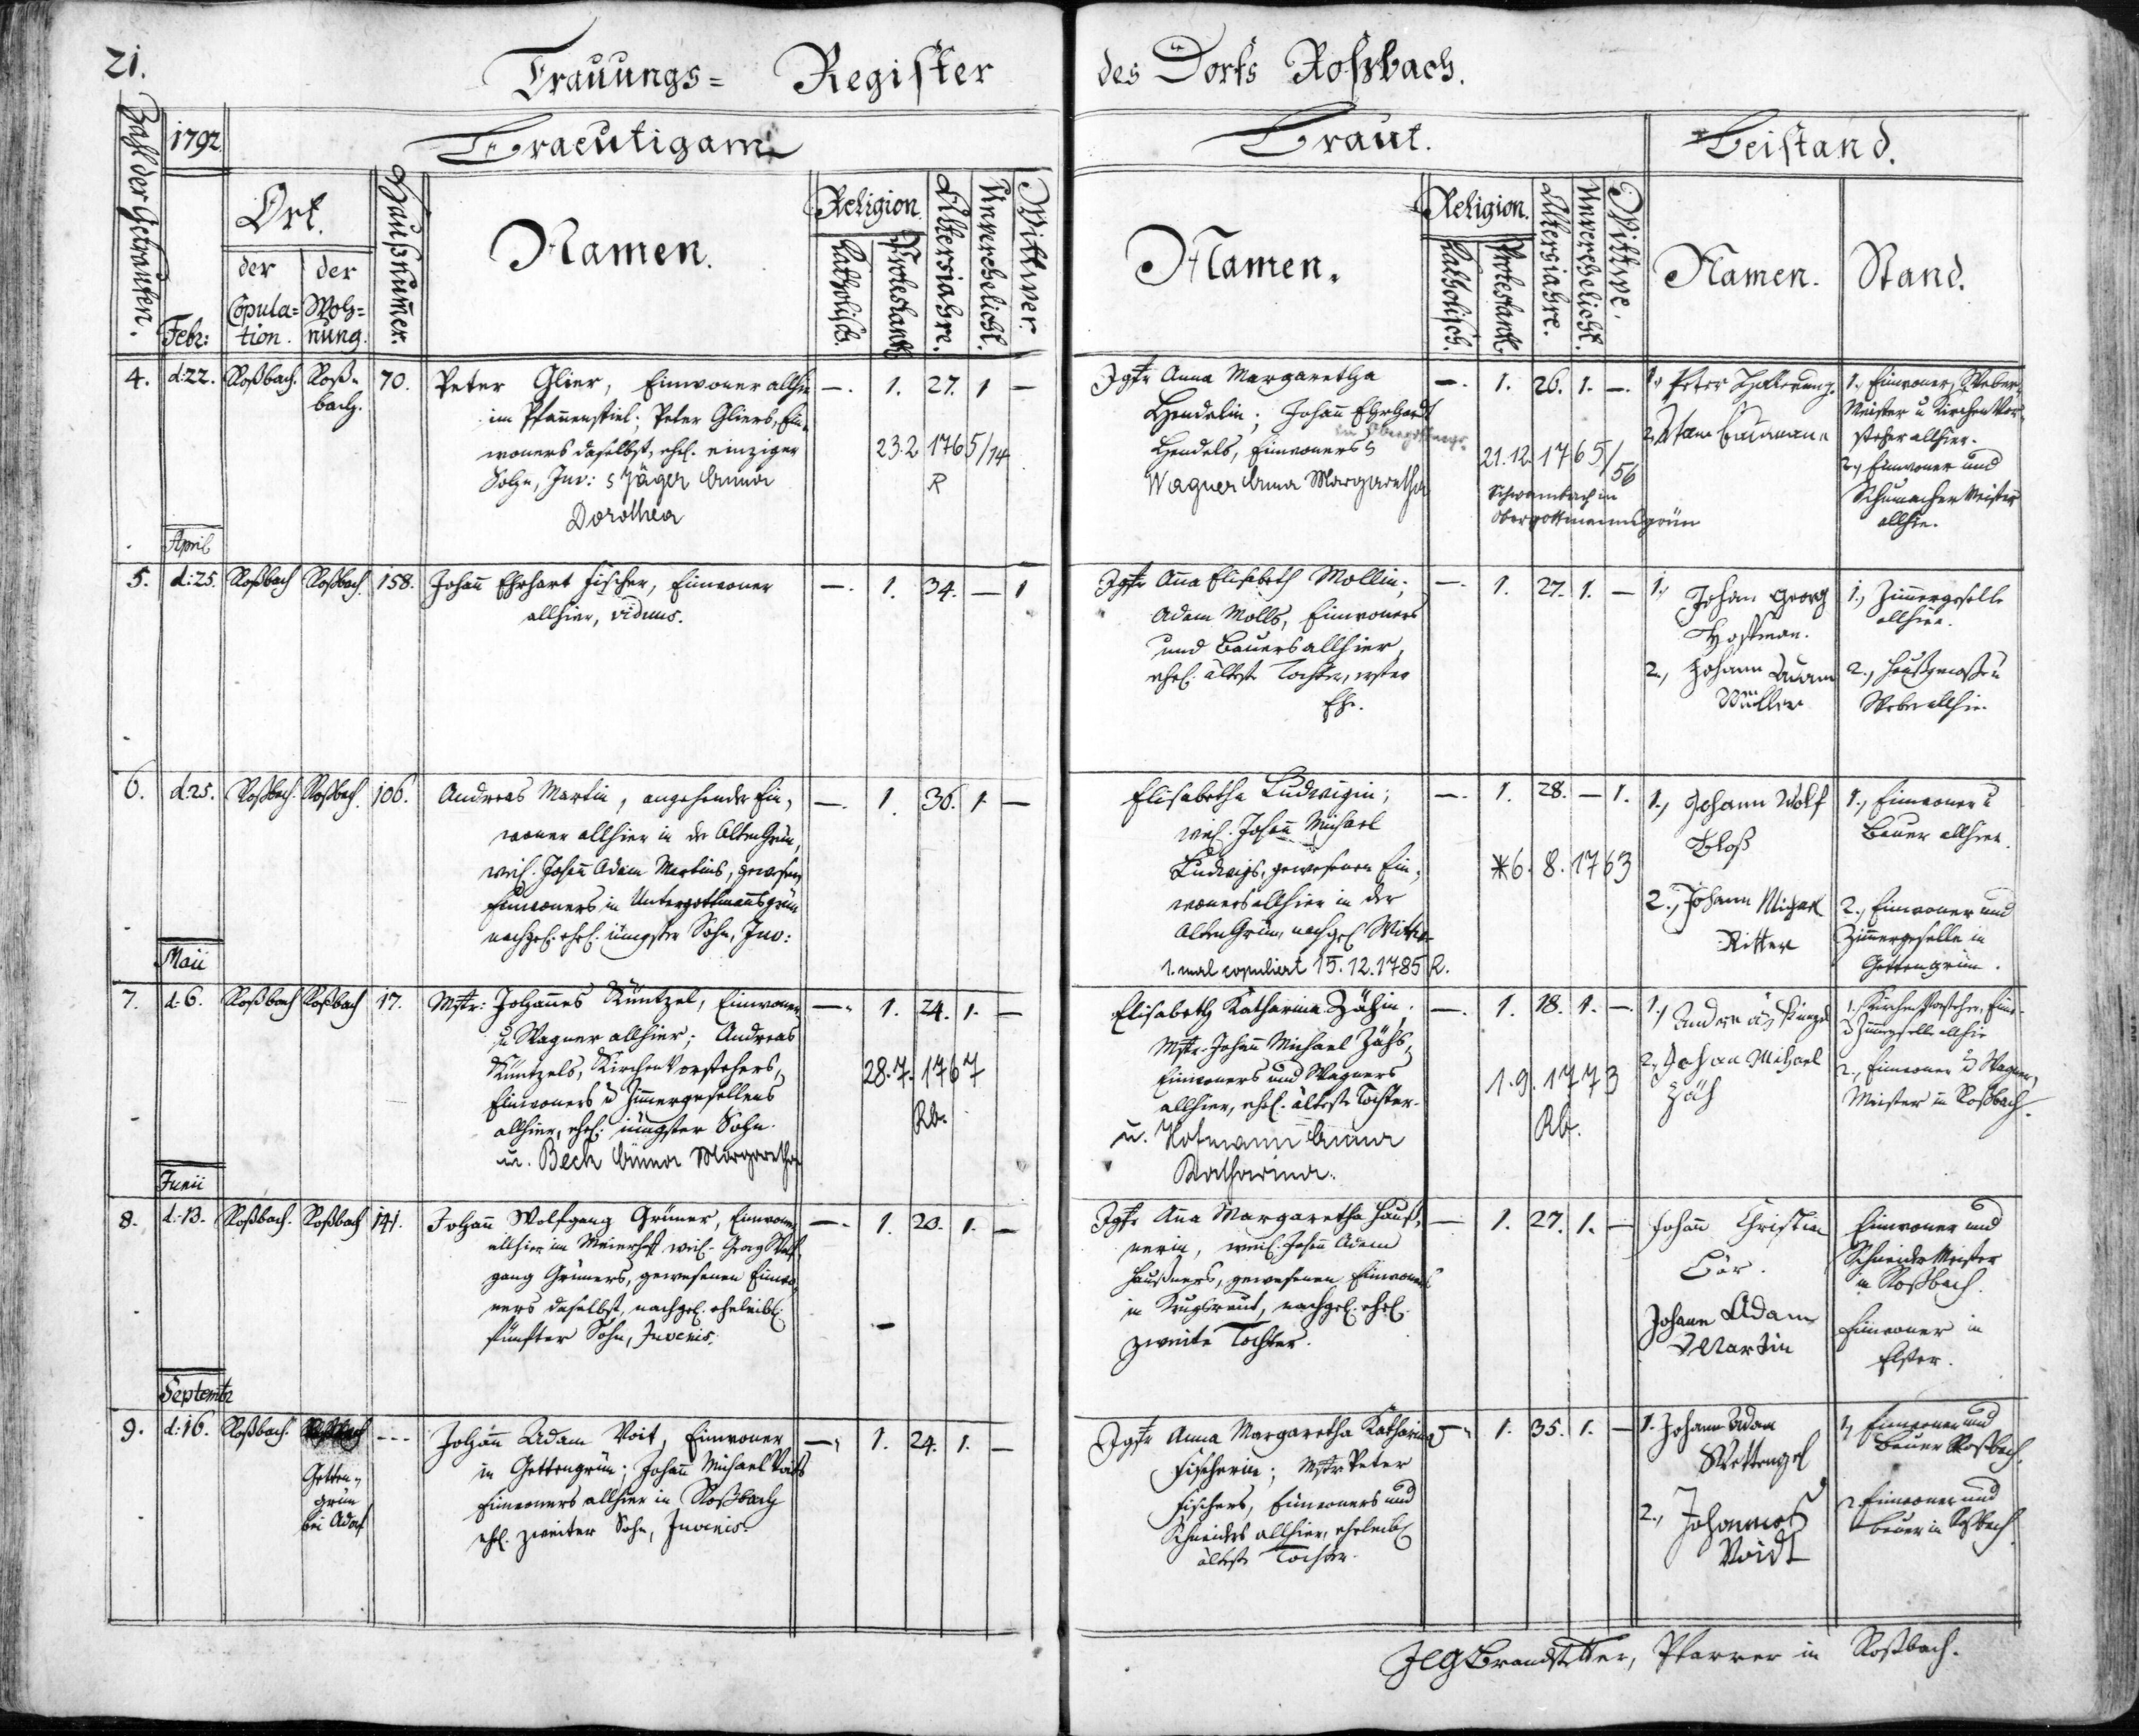 21.
Trauungs= Register des Dorfs Roßbach.
Zahl der Getrauten.
1792
Febr:
Braeutigam
Ort.
der Copula=tion.
der Woh=nung.
Haußnumer.
Namen.
Religion.
Katholisch.
Protestant
Altersiahre.
Unverehelicht.
Wittwer.
Braut.
Namen.
Religion.
Katholisch.
Protestant.
Altersiahre.
Unverehelicht.
Wittwe.
Beistand.
Namen.
Stand.
4. d:22. Roßbach. Roß=bach. 70.
Peter Glier, Einwoner allhier
im Pfannenstiel; Peter Gliers, Ein=
woners daselbst, ehel. einziger
Sohn, Juv: s Jäger Anna
Dorothea
—. 1. 27. 1 —
23.2 1765/14
R
Jgfr Anna Margaretha
Hendelin; Johann Ehrhardt
Hendels, Einwoners
Wagner Anna Margaretha
—. 1. 26. 1. —.
21.12. 1765/56
Schwambach in
Obergottmannsgrün
1., Peter
2, Adam
1., Einwoner, Weber
Meister u Kirchen Vor
steher allhier.
2., Einwoner und
Schumacher Meister
allhie.
April
5. d:25. Roßbach Roßbach. 158.
Johann Ehrhart Fischer, Einwoner
allhier, viduus.
—. 1. 34. — 1
Jgfr Anna Elisabeth Mollin;
Adam Molls, Einwoners
und Bauers allhier,
ehel. älteste Tochter, erster
Ehe.
—. 1. 27. 1. —
1., Johan Georg
Hofman.
2., Johann Adam
Müller
1., Zimmergeselle
allhier.
2., Haußgenosse u
Weber allhie.
6. d:25. Roßbach. Roßbach. 106.
Andreas Martin, angehender Ein=
woner allhier in der Alten Grün,
weil. Johann Adam Martins, gewesen
Einwoners in Untergottmannsgrün
nachgel. ehel. jüngster Sohn, Juv:
—. 1. 36. 1. —
Elisabetha Ludwigin;
weil. Johann Michael
Ludwigs, gewesenen Ein=
woners allhier in der
Alten Grün, nachgel. Wittwe
1. mal copuliert 15.12.1785 R.
—. 1. 28. — 1.
*6. 8. 1763
1., Johann Wolf
Ploß
2., Johann Michael
Ritter
1., Einwoner u
Bauer allhier.
2., Einwoner und
Zimmergeselle in
Gettengrün.
Maii
7. d:6. Roßbach Roßbach 17.
Mstr: Johannes Küntzel, Einwoner
u Wagner allhier; Andreas
Küntzels, Kirchen Vorstehers,
Einwoners u Zimmergesellens
allhier, ehel. jüngster Sohn.
u. Beck Anna Margaretha
—. 1. 24. 1. —
28.7. 1767
Rb.
Elisabeth Katharina Zähin;
Mstr. Johann Michael Zähs,
Einwoners und Wagners
allhier, ehel. älteste Tochter.
u. Hofmann Anna
Katharina.
—. 1. 18. 1. —.
1.9. 1773
Rb.
1., Andreas Künzel
2, Johan Michael
Zäh
1., Kirchen Vorsteher, Einw.
u Zimmergesell allhie
2., Einwoner u Wagner,
Meister in Roßbach.
Junii
8. d:13. Roßbach. Roßbach 141.
Johann Wolfgang Grüner, Einwoner
allhier im Meierhof, weil. Georg Wolf
gang Grüners, gewesenen Einwo
ners daselbst, nachgel. eheleibl.
fünfter Sohn, Juvenis.
—. 1. 20. 1. —
Jgfr Anna Margaretha Hauß=
nerin, weil. Johann Adam
Haußners, gewesenen Einwoners
in Krugsreut, nachgel. ehel.
zweite Tochter.
— 1. 27. 1. —
Johann Christian
Bär.
Johann Adam
Martin
Einwoner und
Schneider Meister
in Roßbach.
Einwoner in
Elster.
Septembr
9. d:16. Roßbach. Getten=
grün
bei Adorf ---
Johann Adam Voit, Einwoner
in Gettengrün; Johann Michael Voits
Einwoners allhier in Roßbach
ehl. zweiter Sohn, Juvenis.
—. 1. 24. 1. —
Jgfr Anna Margaretha Katharina
Fischerin; Mstr Peter
Fischers, Einwoners und
Schneiders allhier, eheleibl.
älteste Tochter.
—. 1. 35. 1. —
1. Johann Adam
Wettengel
2., Johannes
Voidt
1, Einwoner und
Bauer Roßbach.
2 Einwoner und
Bauer in Roßbach
Brandstetter, Pfarrer in Roßbach.